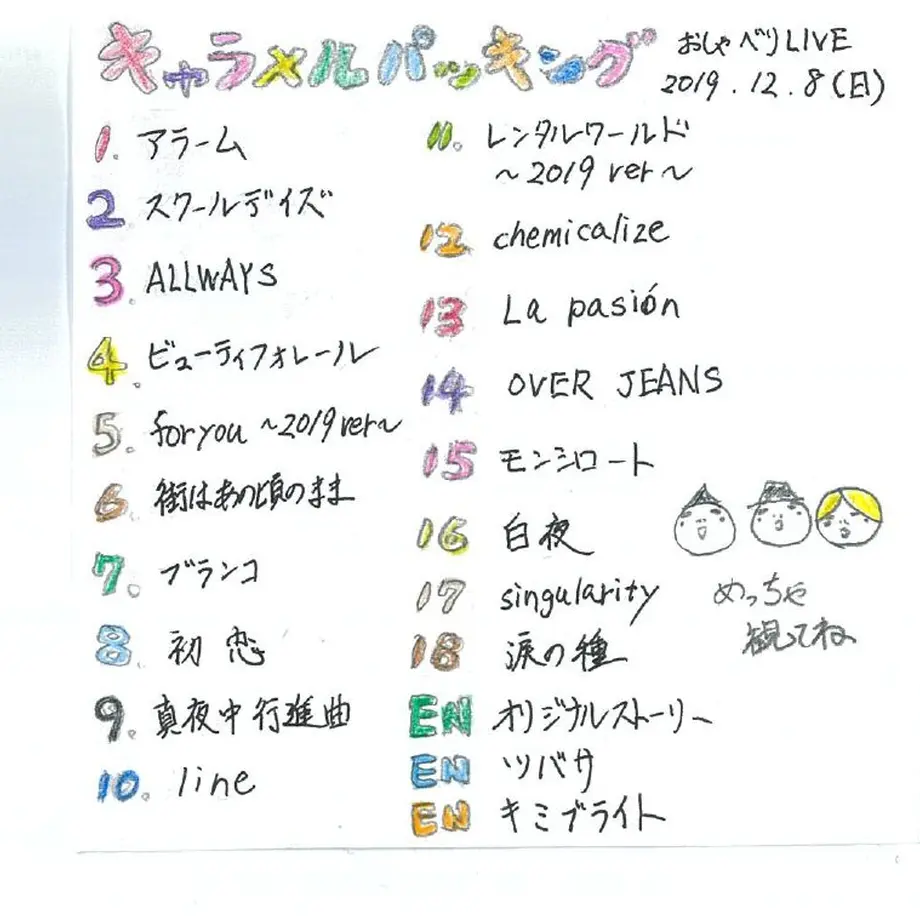 キャラメルパッキング
おしゃべりLIVE
2019.12.8(日)
1. アラーム
2 スクールデイズ
3. ALLWAYS
4. ビューティフォレール
5. for you ~2019 ver~
6. 街はあの頃のまま
7. ブランコ
8. 初恋
9. 真夜中行進曲
10. line
11. レンタルワールド
~2019 ver~
12 chemicalize
13 La pasión
14 OVER JEANS
15 モンシロート
16 白夜
17 singularity
18 涙の種
EN オリジナルストーリー
EN ツバサ
EN キミブライト
めっちゃ
観てね